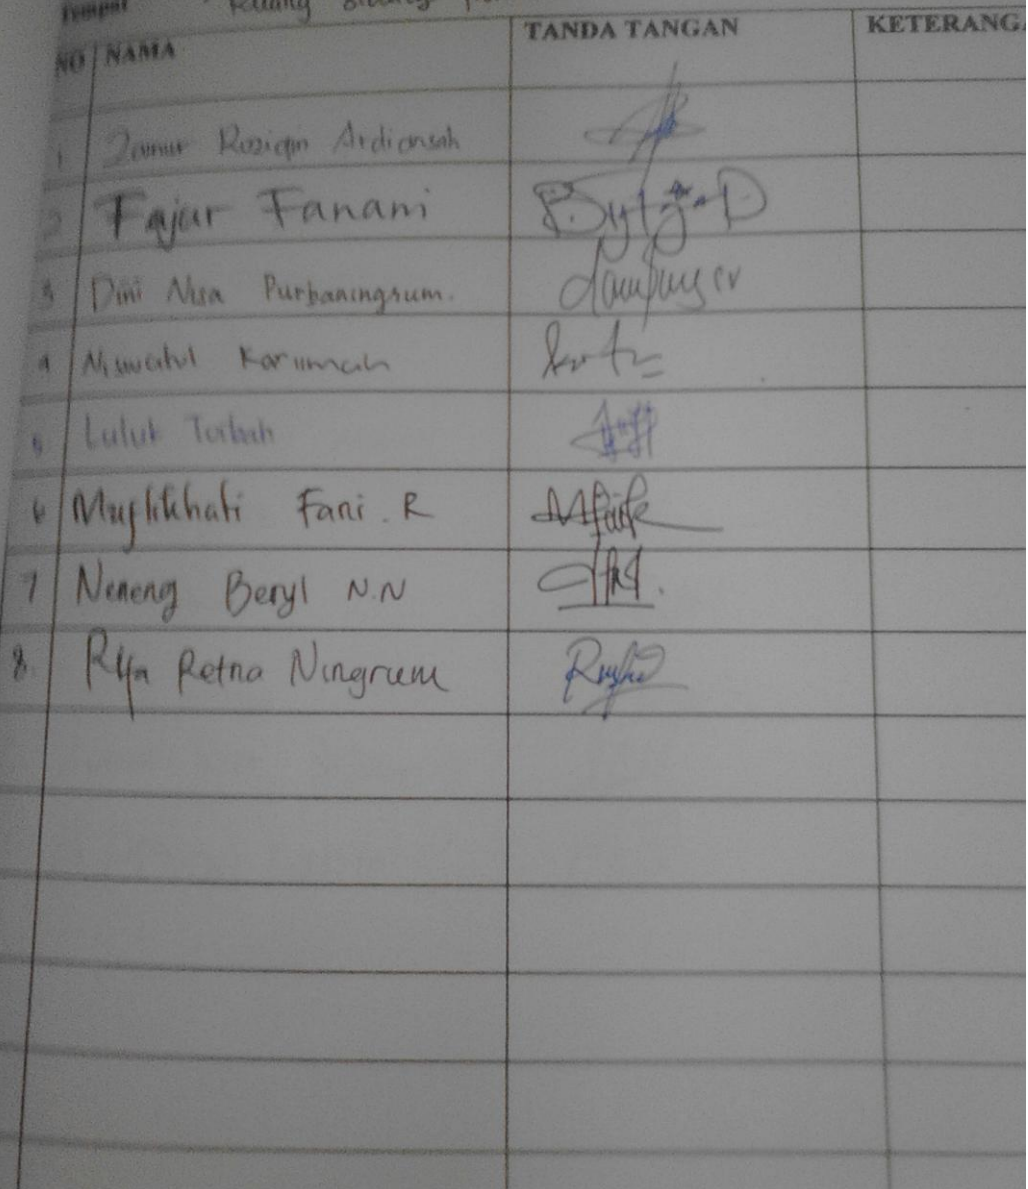 Tempat : Ruang Sidang
NO NAMA TANDA TANGAN KETERANGA
1 Zainur Roziqin Ardiansah
2 Fajar Fanani
3 Dini Nisa Purbaningrum.
4 Niswatul Karimah
5 Luluk
6 Muslikhati Fani . R
7 Neneng Beryl N.N
8. Rya Retna Ningrum